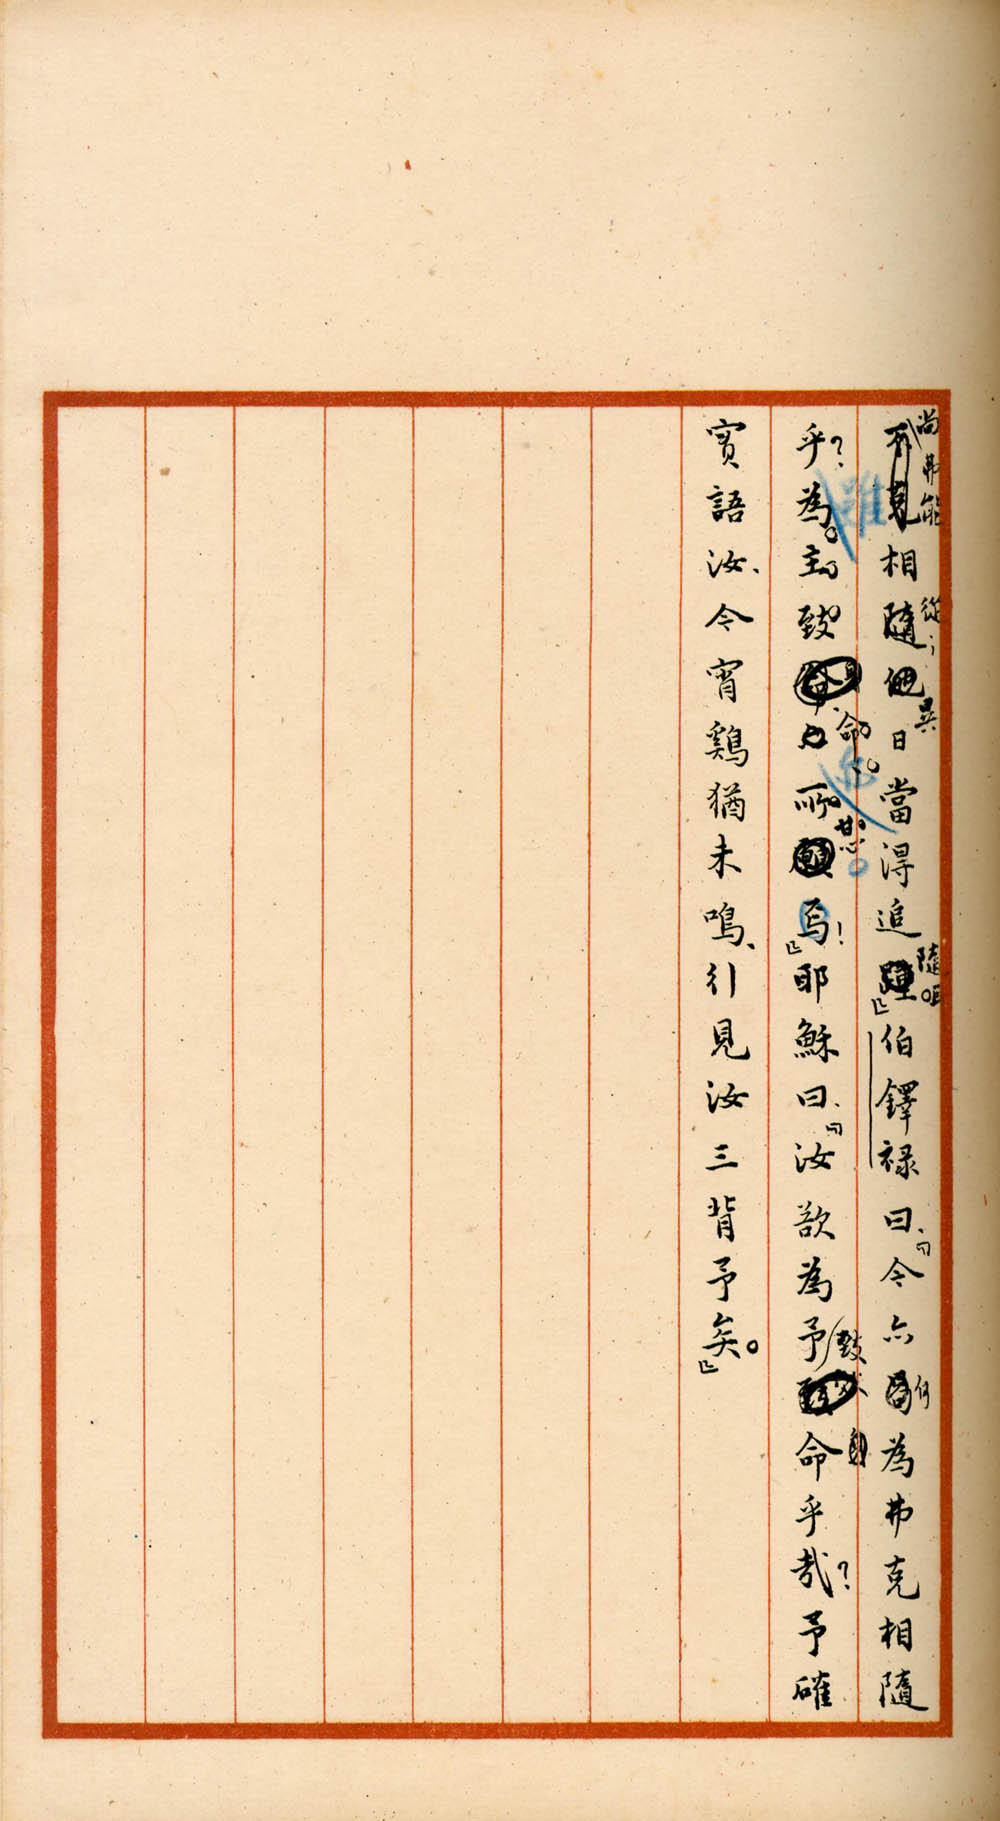 尚弗能相從；異日當得追隨耳。』伯鐸祿曰、『今亦何為弗克相隨
乎？雖為主致命、亦所甘焉！』耶穌曰、『汝欲為予致命乎哉？予確
實語汝、今宵鷄猶未鳴、行見汝三背予矣。』